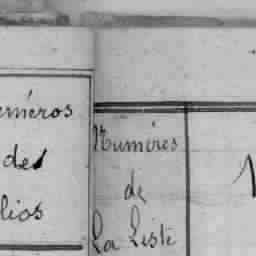 uméros
des
lios
Numéros
de
La Liste